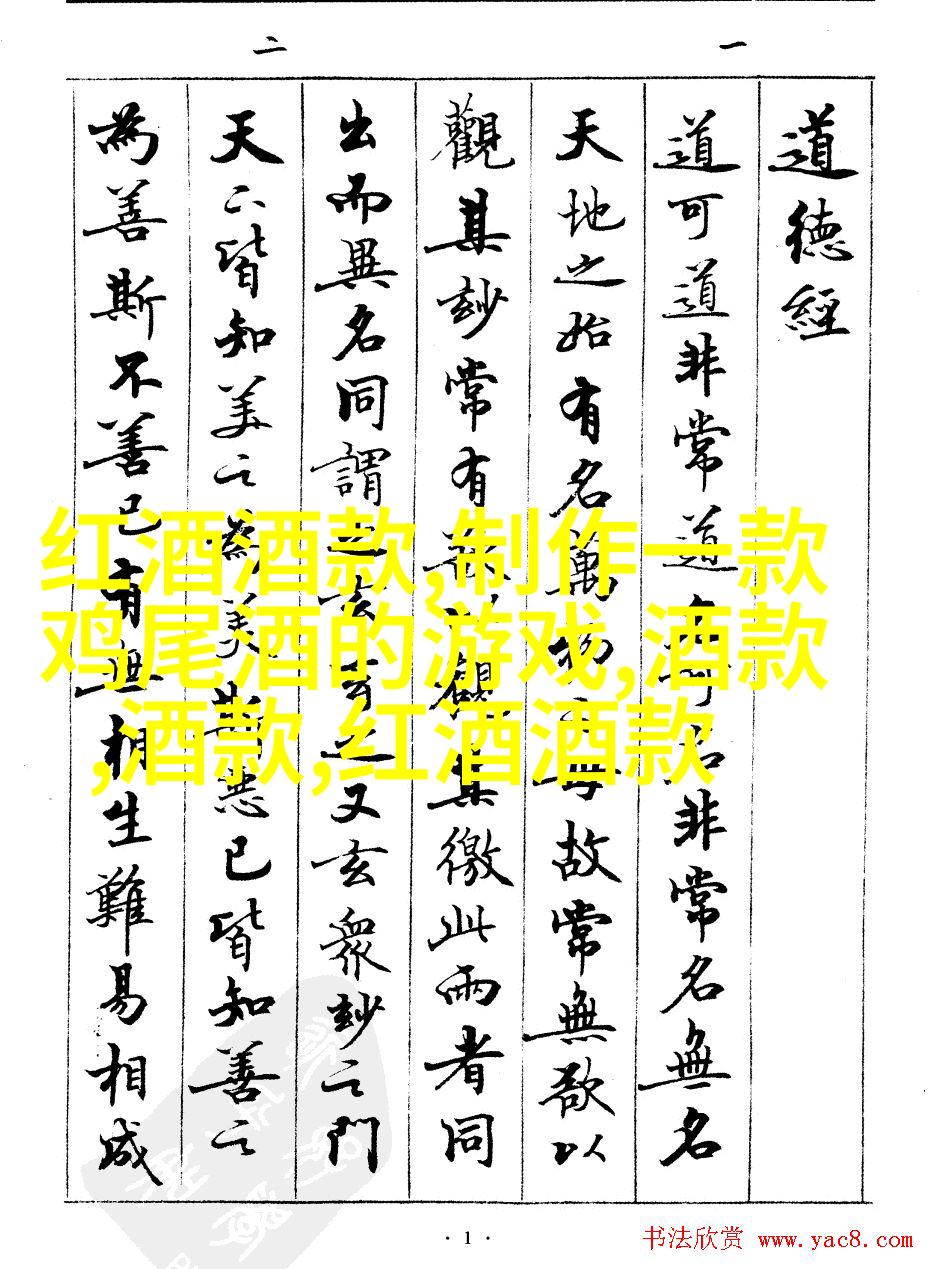 一
道德經
道可道非常道名可名非常名無名
天地之始有名萬物之母故常無欲以
觀其玅常有欲以觀其徼此兩者同
二
出而異名同謂之玄玄之又玄衆玅之門
天下皆知美之為美斯惡已皆知善之
為善斯不善已有無相生難易相成
红酒酒款,制作一款
鸡尾酒的游戏,酒款
,酒款,红酒酒款
· 1 ·
书法欣赏 www.yac8.com